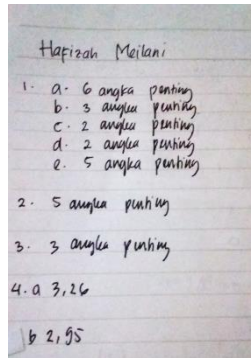 Hafizah Meilani
1. a. 6 angka penting
b. 3 angka penting
c. 2 angka penting
d. 2 angka penting
e. 5 angka penting
2. 5 angka penting
3. 3 angka penting
4. a 3,26
b 2,95